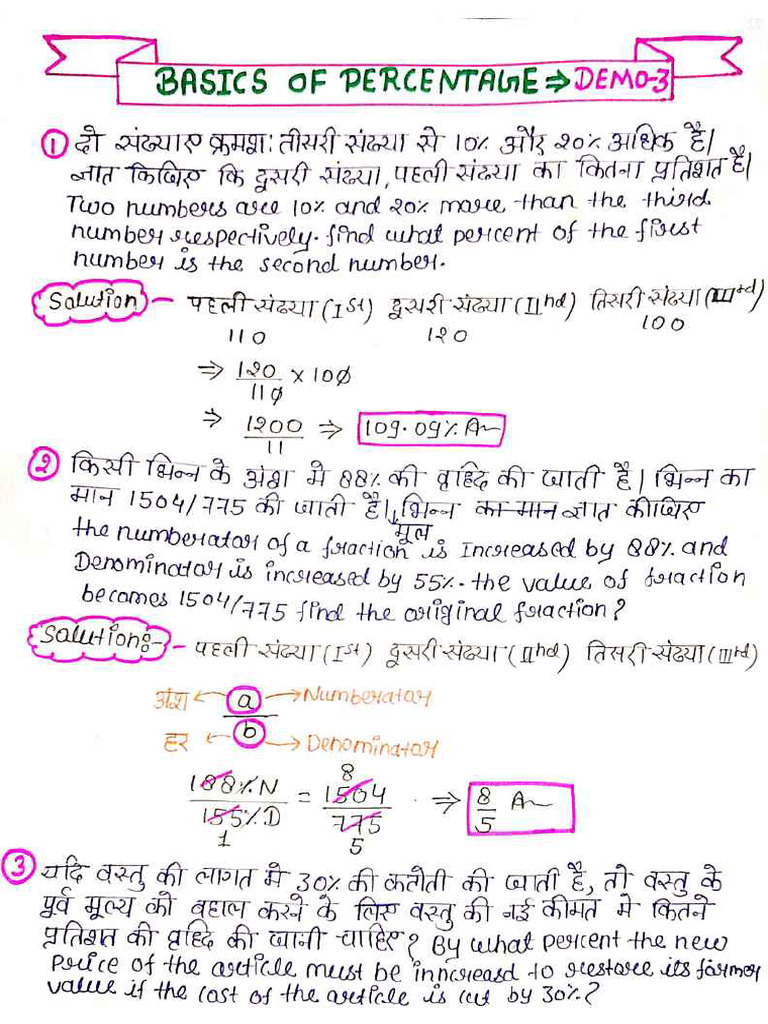 BASICS OF PERCENTAGE ⇒ DEMO-3
① दो संख्याए क्रमशः तीसरी संख्या से 10% और 20% अधिक है।
ज्ञात किजिए कि दुसरी संख्या, पहली संख्या का कितना प्रतिशत है।
Two numbers are 10% and 20% more than the third
number respectively. find what percent of the first
number is the second number.
Solution - पहली संख्या (Ist) दुसरी संख्या (IInd) तिसरी संख्या (IIIrd)
110 120 100
⇒ 120/110 × 100
⇒ 1200/11 ⇒ 109.09% Ans
② किसी भिन्न के अंश मे 88% की वृद्दि की जाती है। भिन्न का
मान 1504/775 की जाती है। भिन्न का मान ज्ञात कीजिए
मूल
the numberator of a fraction is Increased by 88% and
Denominator is increased by 55%. the value of fraction
becomes 1504/775 find the original fraction?
Solution:- - पहली संख्या (Ist) दुसरी संख्या (IInd) तिसरी संख्या (IIIrd)
अंश ← a → Numberator
हर ← b → Denominator
8
188%N/155%D = 1504/775 ⇒ 8/5 Ans
1 5
③ यदि वस्तु की लागत मे 30% की कतोती की जाती है, तो वस्तु के
पुर्व मूल्य को बहाल करने के लिए वस्तु की नई कीमत मे कितने
प्रतिशत की वृद्दि की जानी चाहिए? By what percent the new
Price of the article must be inncreasd to restore its farmer
value if the cost of the article is cut by 30%?